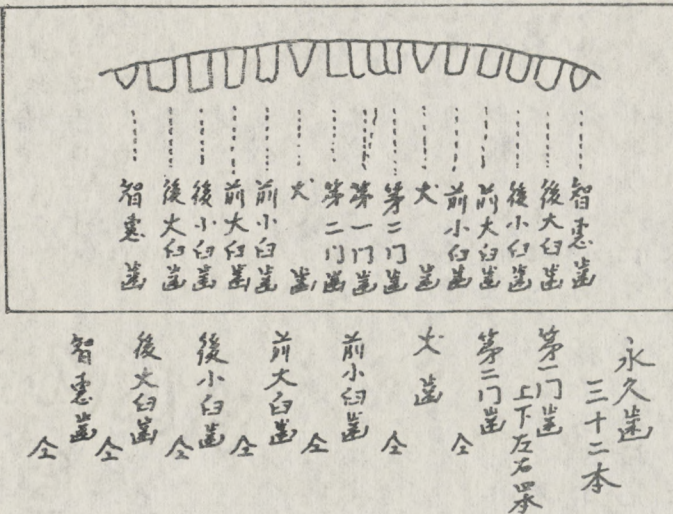 智恵歯
後大臼歯
後小臼歯
前大臼歯
前小臼歯
犬歯
第二门歯
第一门歯
第二门歯
犬歯
前小臼歯
前大臼歯
後小臼歯
後大臼歯
智恵歯
永久歯
三十二本
第一门歯
上下左右四本
第二门歯
仝
犬歯
仝
前小臼歯
仝
前大臼歯
仝
後小臼歯
仝
後大臼歯
仝
智恵歯
仝